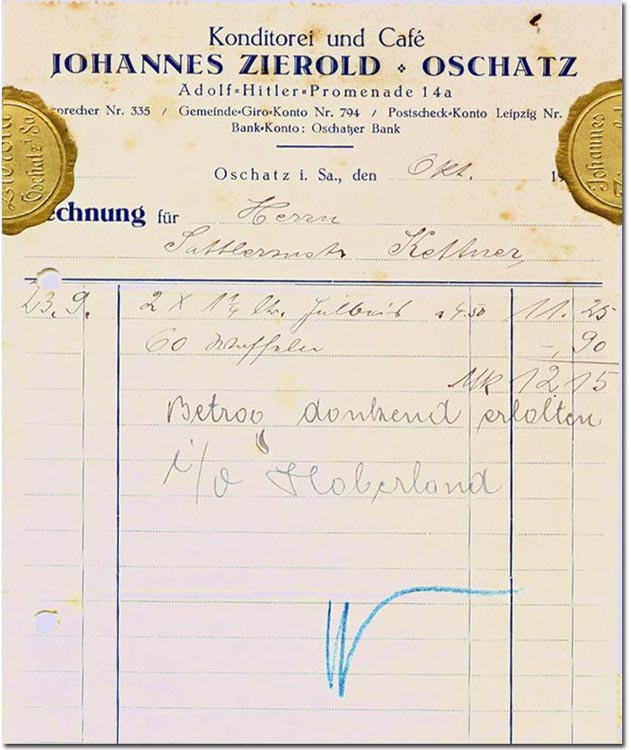 Konditorei und Café
JOHANNES ZIEROLD · OSCHATZ
Adolf-Hitler-Promenade 14a
sprecher Nr. 335 / Gemeinde-Giro-Konto Nr. 794 / Postscheck-Konto Leipzig Nr.
Bank-Konto: Oschatzer Bank
Oschatz i. Sa., den Okt. 19
Zierold
Oschatz i/Sa
Johannes
Zi
echnung für Herrn
Sattlermstr Kettner,
23. 9. 2 X 1¼ a 4.50 11.25
60 Waffeln -,90
MK 12,15
Betrag dankend erhalten
i/v Haberland